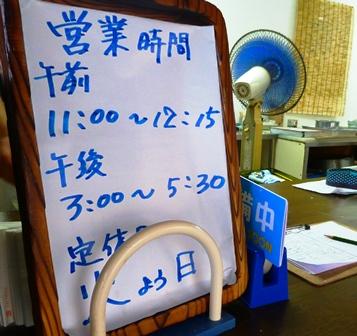 営業時間
午前
11:00～12:15
午後
3:00～5:30
定休
火よう日
備中
SOON